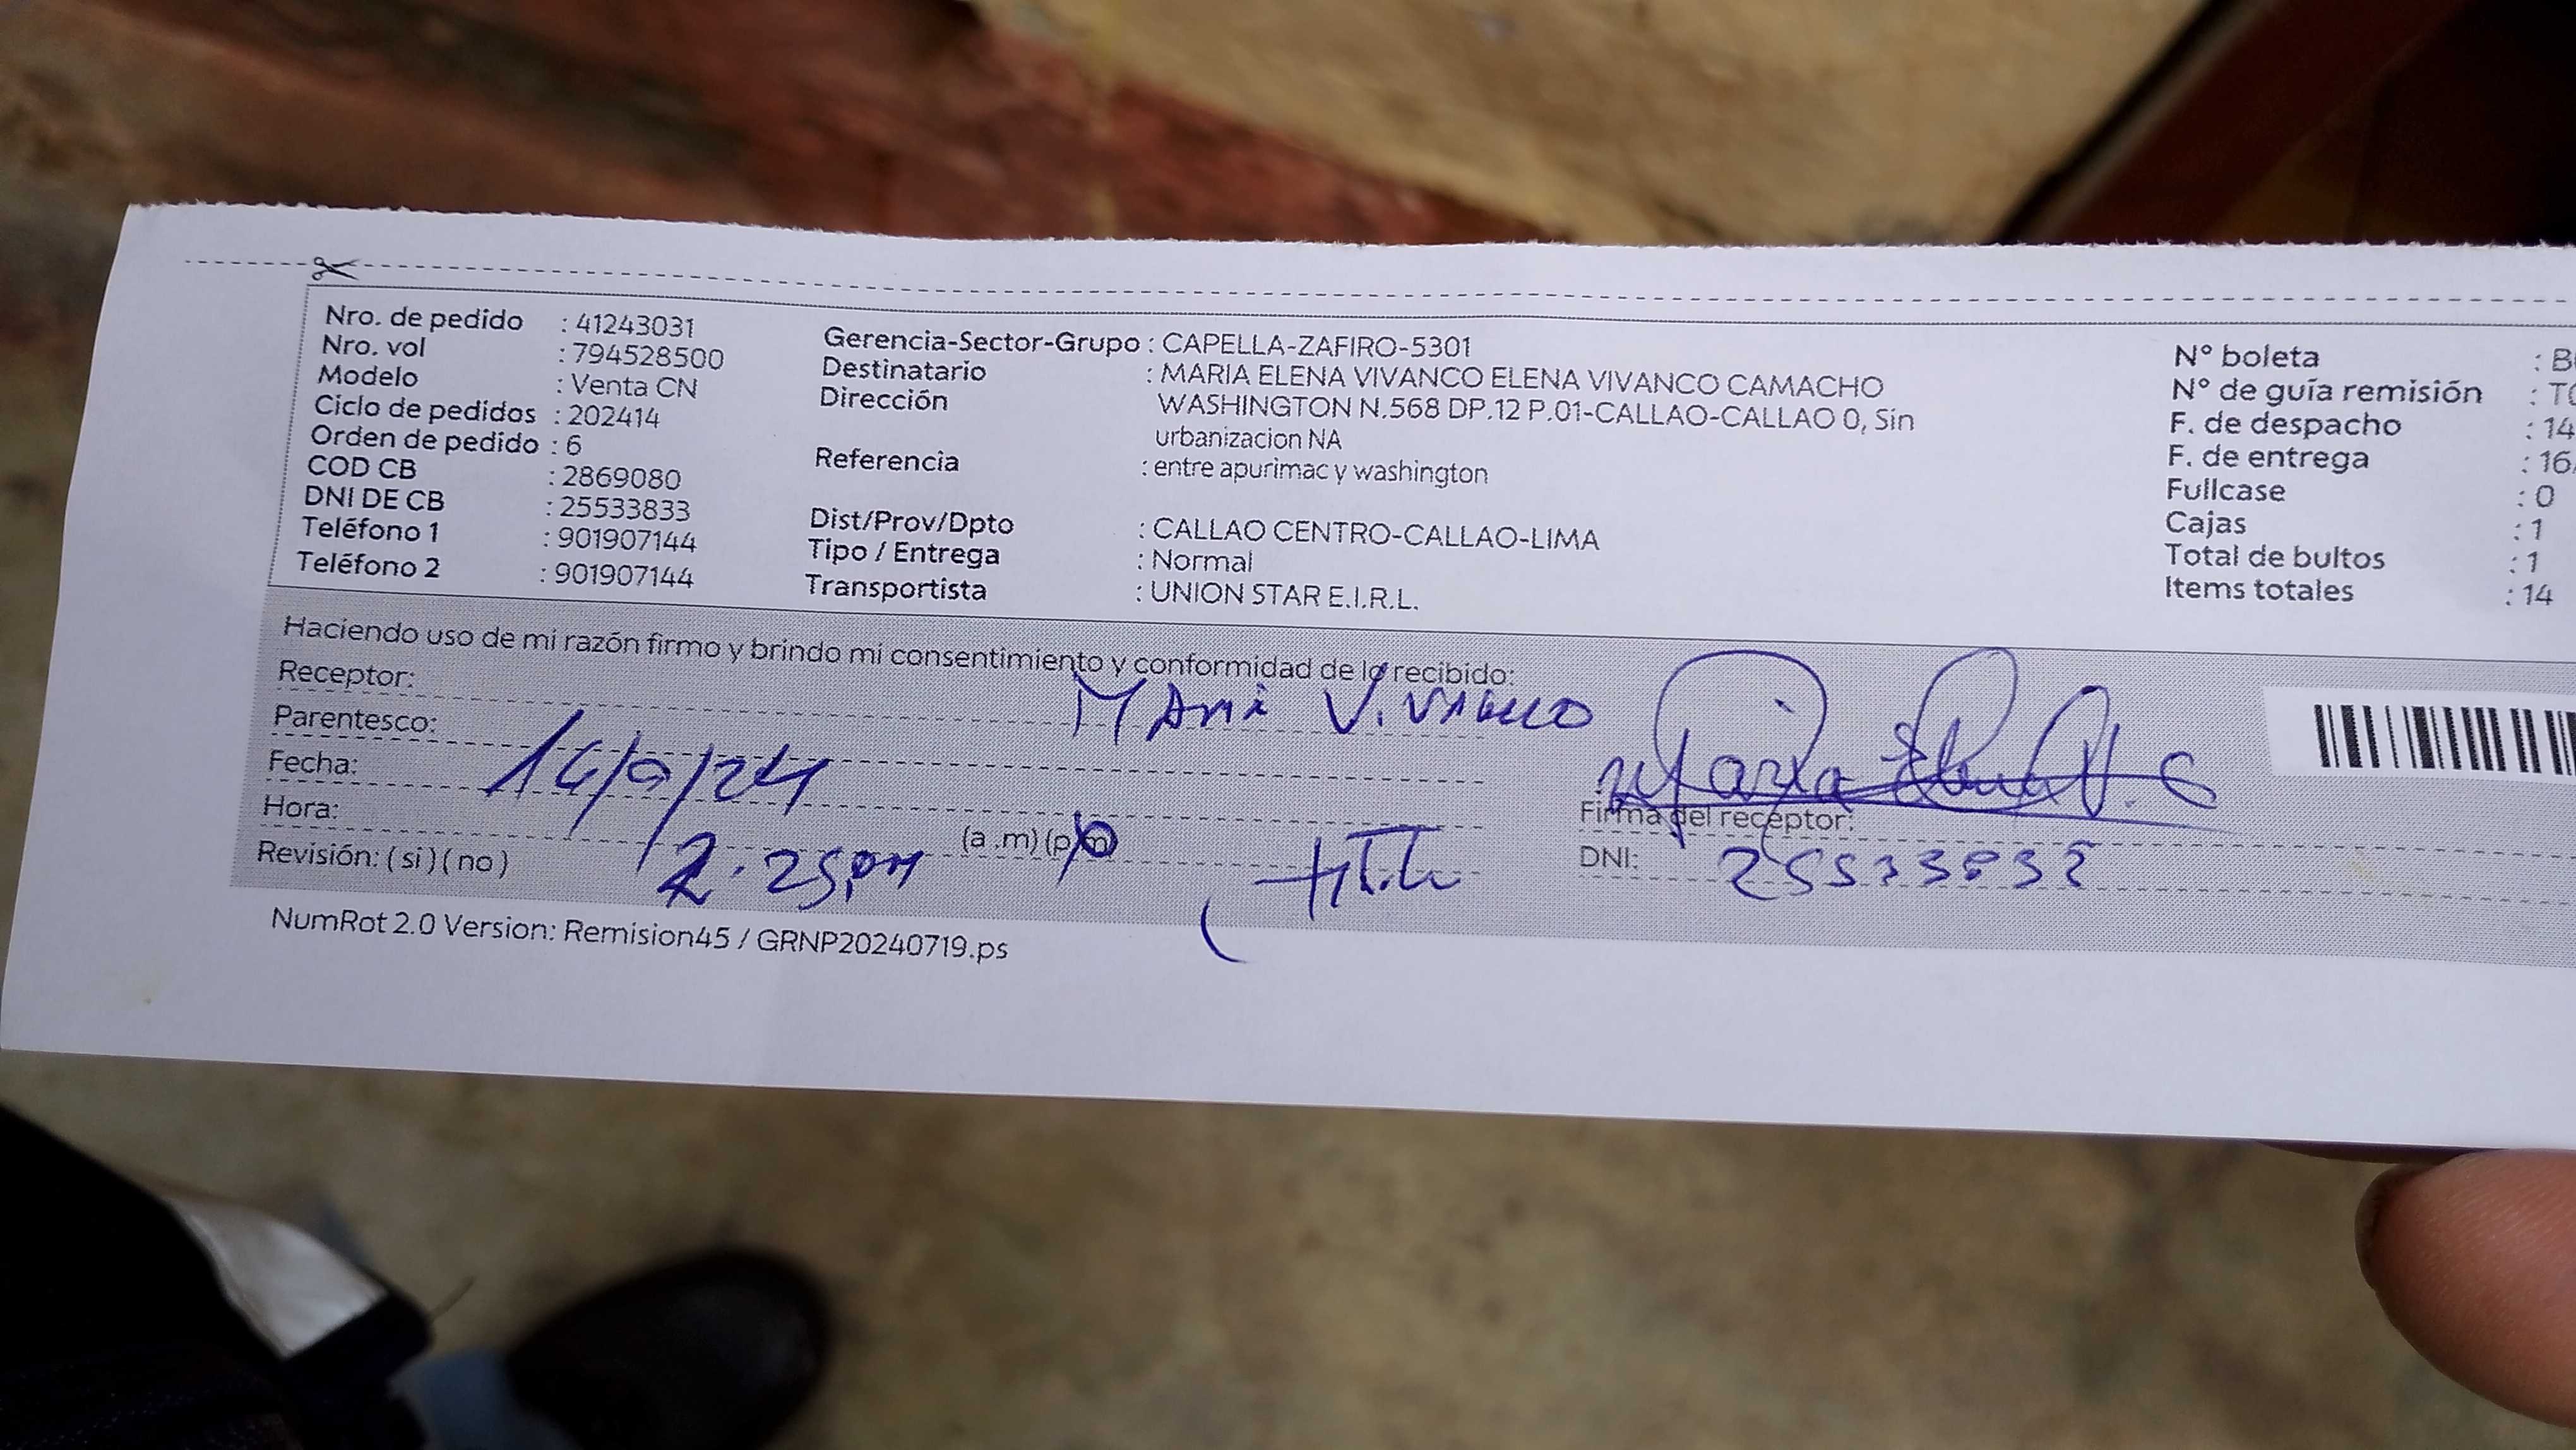 Nro. de pedido : 41243031
Nro. vol : 794528500
Modelo : Venta CN
Ciclo de pedidos : 202414
Orden de pedido : 6
COD CB : 2869080
DNI DE CB : 25533833
Teléfono 1 : 901907144
Teléfono 2 : 901907144
Gerencia-Sector-Grupo : CAPELLA-ZAFIRO-5301
Destinatario : MARIA ELENA VIVANCO ELENA VIVANCO CAMACHO
Dirección WASHINGTON N.568 DP.12 P.01-CALLAO-CALLAO 0, Sin
urbanizacion NA
Referencia : entre apurimac y washington
Dist/Prov/Dpto : CALLAO CENTRO-CALLAO-LIMA
Tipo / Entrega : Normal
Transportista : UNION STAR E.I.R.L.
N° boleta : B
N° de guía remisión : T
F. de despacho : 14
F. de entrega : 16
Fullcase : 0
Cajas : 1
Total de bultos : 1
Items totales : 14
Haciendo uso de mi razón firmo y brindo mi consentimiento y conformidad de lo recibido:
Receptor: Vivanco
Parentesco:
Fecha:
Hora: (a .m) (p.m)
Revisión: ( si ) ( no )
Firma del receptor:
DNI:
NumRot 2.0 Version: Remision45 / GRNP20240719.ps